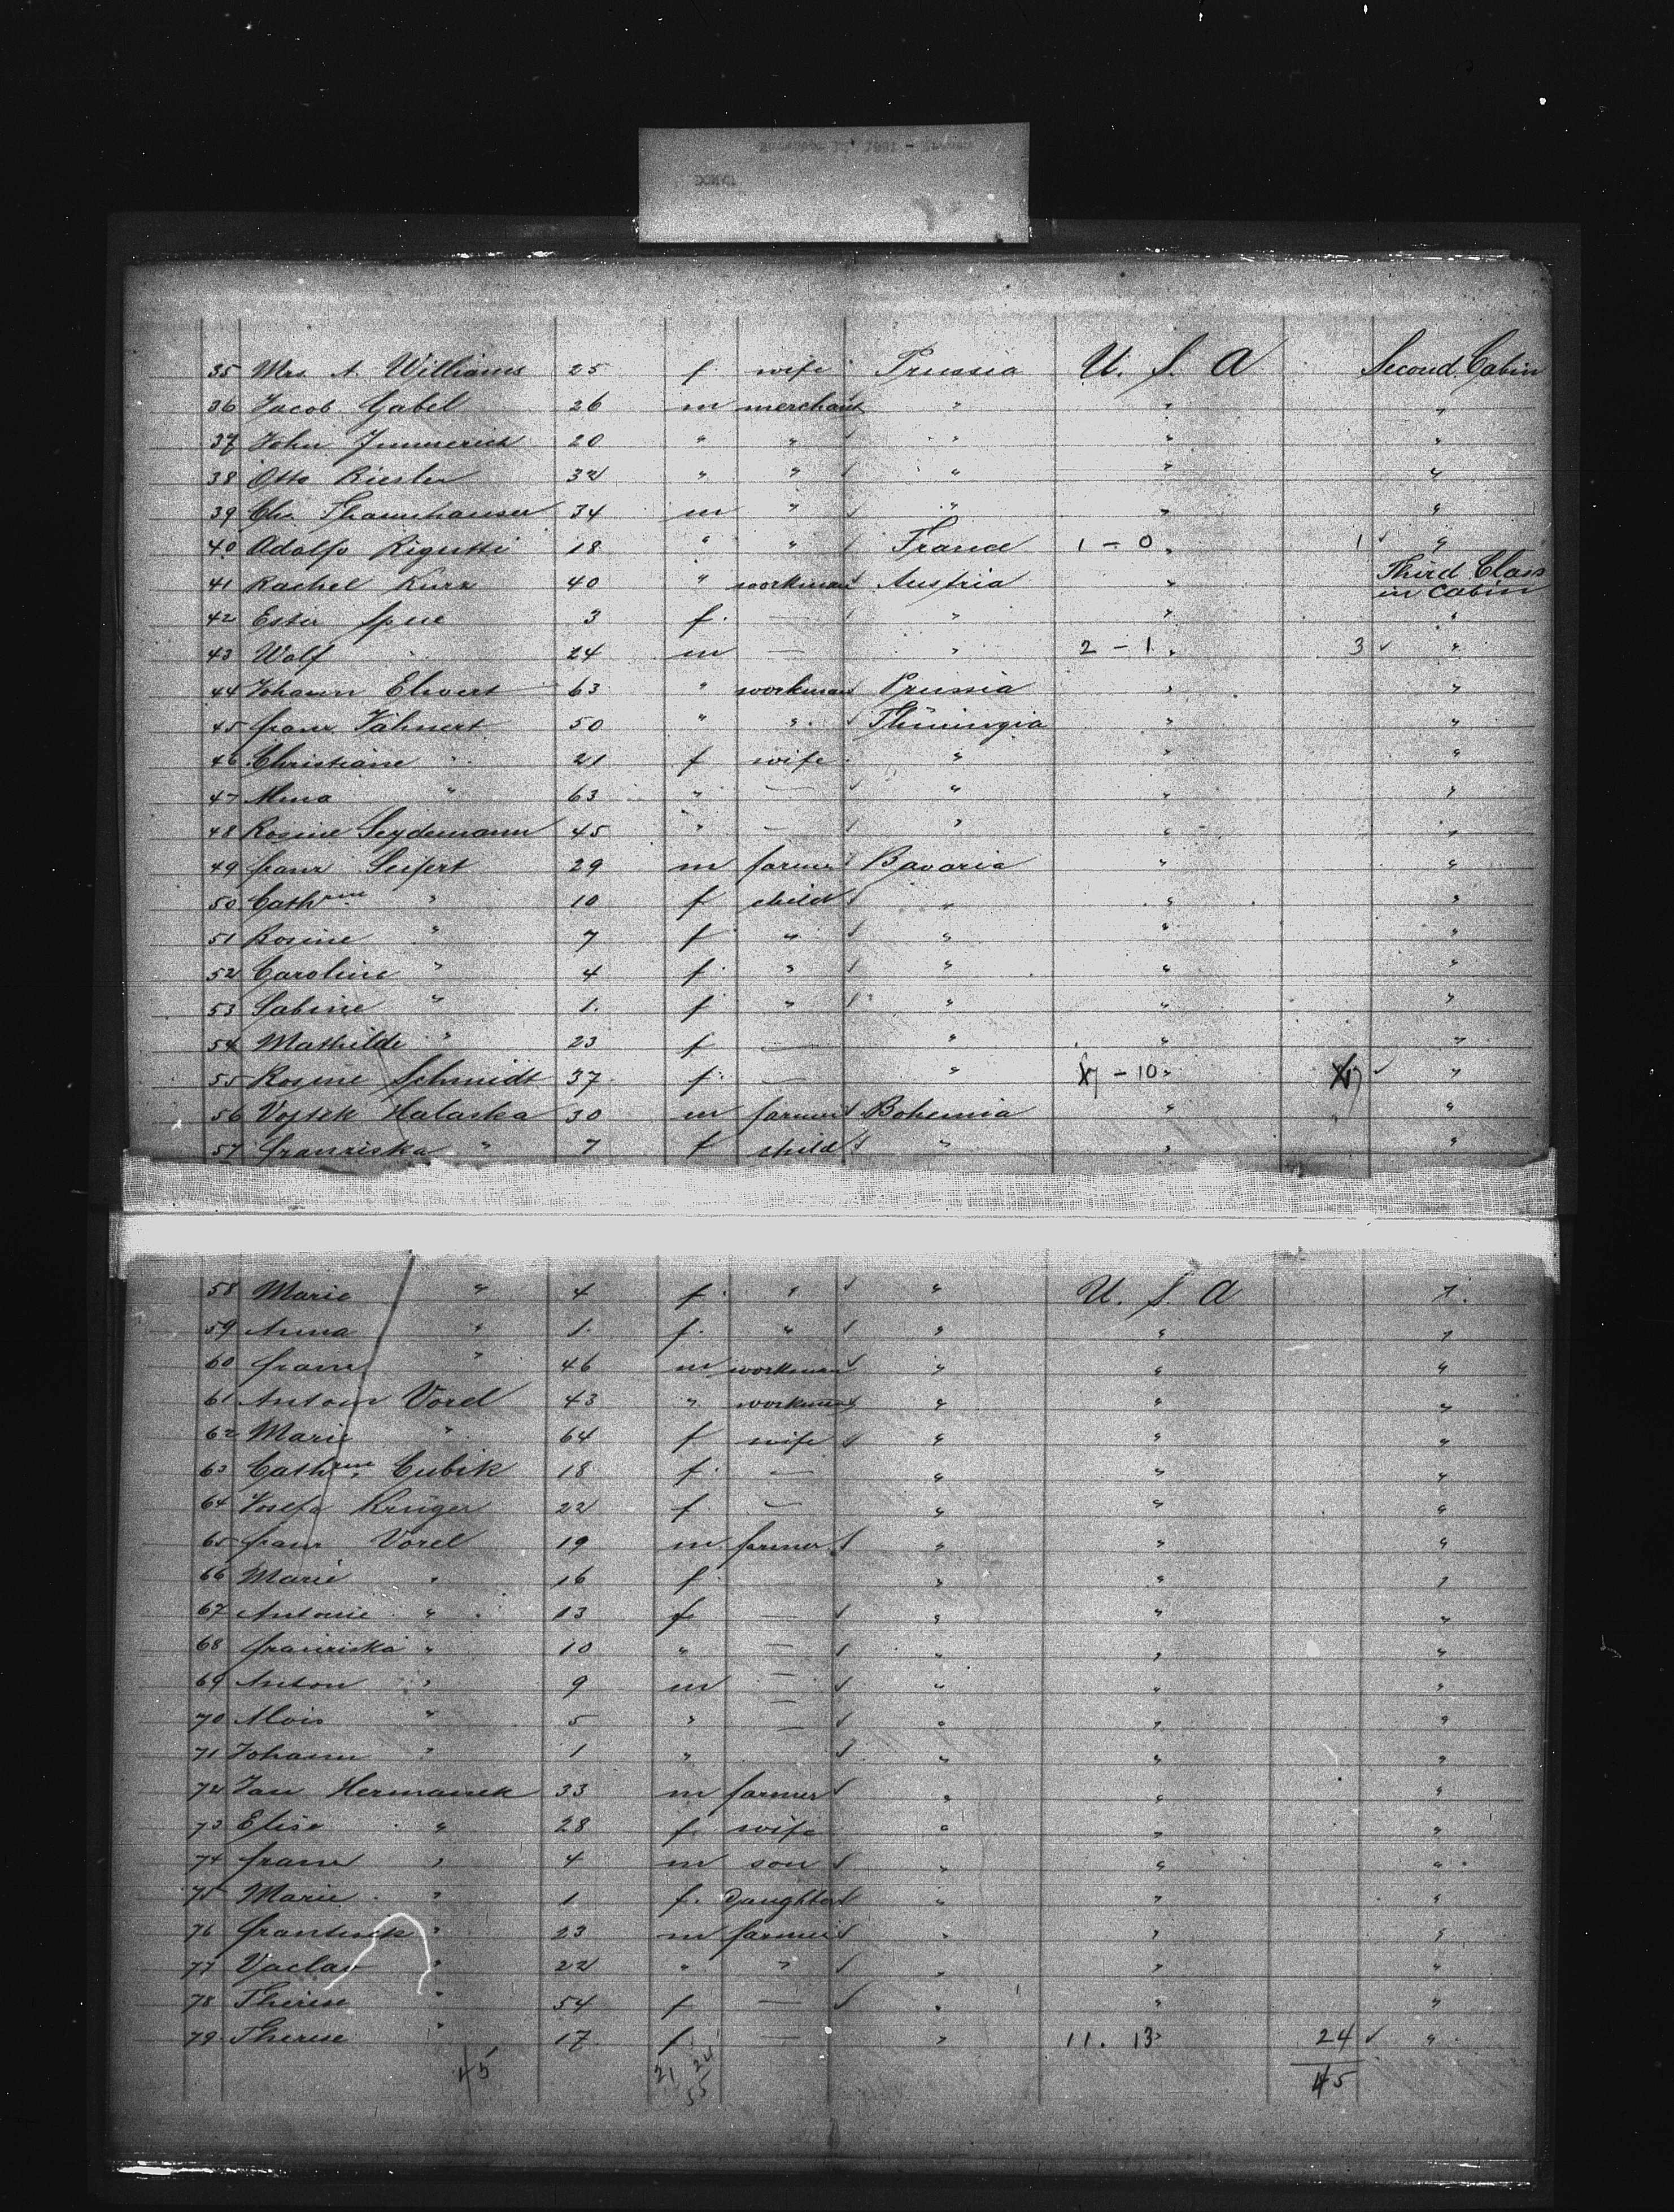 35 Mrs. A. Williams 25 f. wife Prussia U. S. A Second Cabin
36 Jacob Gabel 26 m merchant " " "
37 John Immerich 20 " " " " "
38 Otto Riesler 32 " " " " "
39 Chr. Thannhauser 34 m " " " "
40 Adolfo Rigutti 18 " " France 1 - 0 " 1 ✓ "
41 Rachel Kurz 40 " workman Austria " Third Class in Cabin
42 Ester 3 f. — " " "
43 Wolf " 24 m — " 2 - 1 " 3 ✓ "
44 Johann Elwert 63 " workman Prussia " "
45 franz Jähnert 50 " " Thüringia " "
46 Christiane " 21 f wife " " "
47 Mina " 63 " — " " "
48 Rosine Seydemann 45 " — " " "
49 franz Seifert 29 m farmer Bavaria " "
50 Cathrine " 10 f child " " "
51 Rosine " 7 f " " " "
52 Caroline " 4 f. " " " "
53 Sabine " 1. f " " " "
54 Mathilde " 23 f — " " "
55 Rosine Schmidt 37 f. — " 7 - 10 " 17 ✓ "
56 Vojtek Halaska 30 m farmer Bohemia " "
57 franziska " 7 f child " " "
58 Marie " 4 f. " " U. S. A "
59 Anna " 1. f. " " " "
60 franz " 46 m workman " " "
61 Antoin Vorel 43 " workman " " "
62 Marie " 64 f wife " " "
63 Cathrine Cubik 18 f. — " " "
64 Josefa Krüger 22 f. — " " "
65 franz Vorel 19 m farmer " " "
66 Marie " 16 f. — " " "
67 Antonie " 13 f — " " "
68 franziska " 10 " — " " "
69 Anton " 9 m — " " "
70 Alois " 5 " — " " "
71 Johann " 1 " " " "
72 Jan Hermanek 33 m farmer " " "
73 Elise " 28 f. wife " " "
74 franz " 4 m son " " "
75 Marie " 1 f. Daughter " " "
76 frantisek " 23 m farmer " " "
77 Vaclav " 22 " " " " "
78 Therese " 54 f — " " "
79 Therese " 17 f — " 11. 13 " 24 ✓ "
45 21 24 45
55